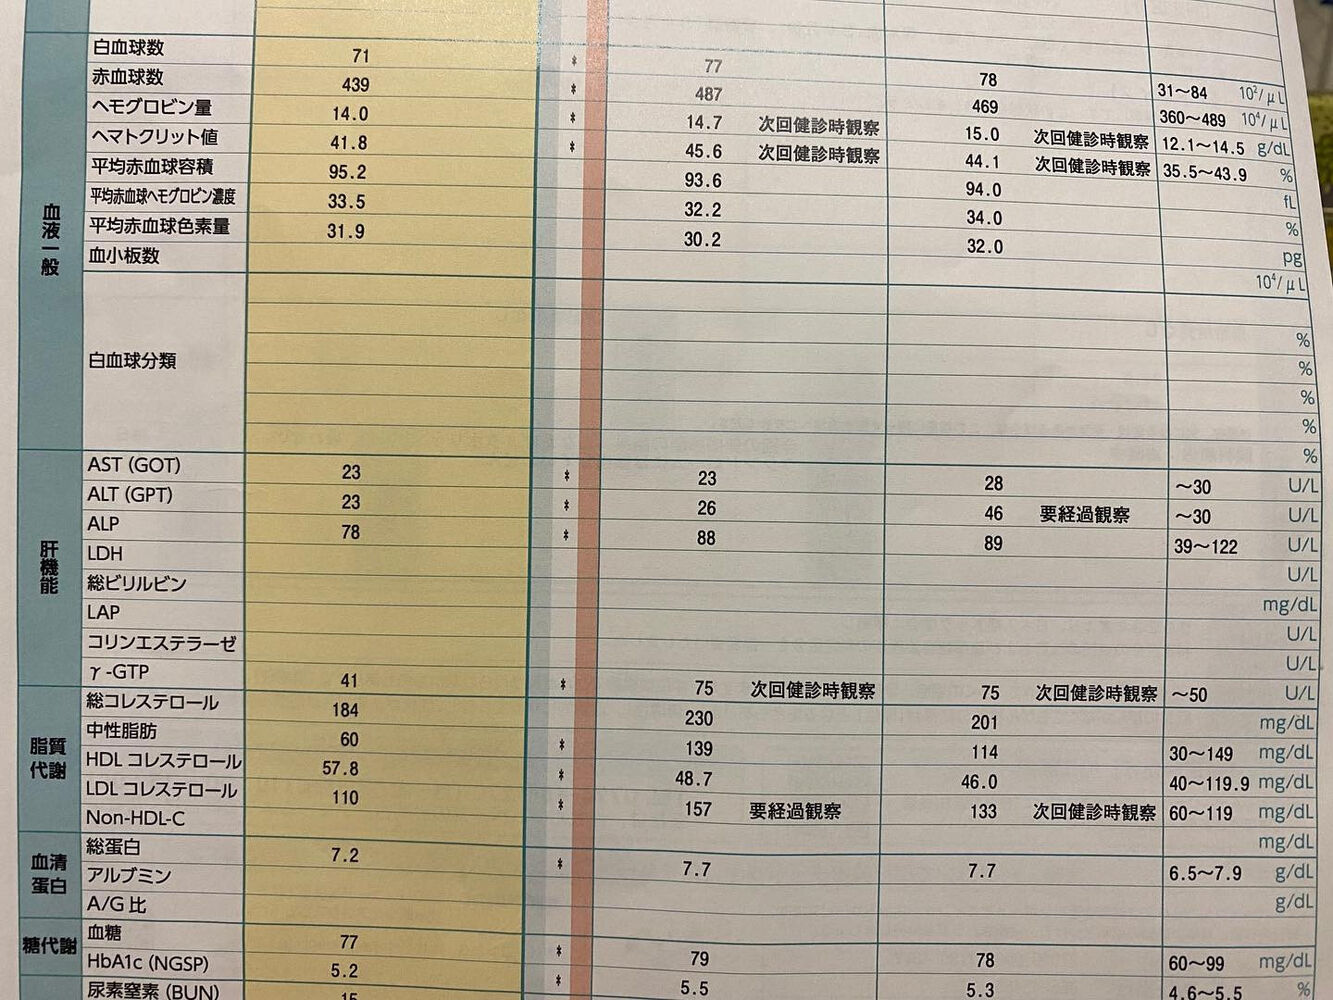 血液一般
白血球数 71 * 77 78 31〜84 10²/μL
赤血球数 439 * 487 469 360〜489 10⁴/μL
ヘモグロビン量 14.0 * 14.7 次回健診時観察 15.0 次回健診時観察 12.1〜14.5 g/dL
ヘマトクリット値 41.8 * 45.6 次回健診時観察 44.1 次回健診時観察 35.5〜43.9 %
平均赤血球容積 95.2 93.6 94.0 fL
平均赤血球ヘモグロビン濃度 33.5 32.2 34.0 %
平均赤血球色素量 31.9 30.2 32.0 pg
血小板数 10⁴/μL
白血球分類
%
%
%
%
%
肝機能
AST (GOT) 23 * 23 28 〜30 U/L
ALT (GPT) 23 * 26 46 要経過観察 〜30 U/L
ALP 78 * 88 89 39〜122 U/L
LDH U/L
総ビリルビン mg/dL
LAP U/L
コリンエステラーゼ U/L
γ-GTP 41 * 75 次回健診時観察 75 次回健診時観察 〜50 U/L
脂質代謝
総コレステロール 184 230 201 mg/dL
中性脂肪 60 * 139 114 30〜149 mg/dL
HDL コレステロール 57.8 * 48.7 46.0 40〜119.9 mg/dL
LDL コレステロール 110 * 157 要経過観察 133 次回健診時観察 60〜119 mg/dL
Non-HDL-C mg/dL
血清蛋白
総蛋白 7.2 * 7.7 7.7 6.5〜7.9 g/dL
アルブミン g/dL
A/G 比
糖代謝
血糖 77 * 79 78 60〜99 mg/dL
HbA1c (NGSP) 5.2 * 5.5 5.3 4.6〜5.5 %
尿素窒素 (BUN) 15